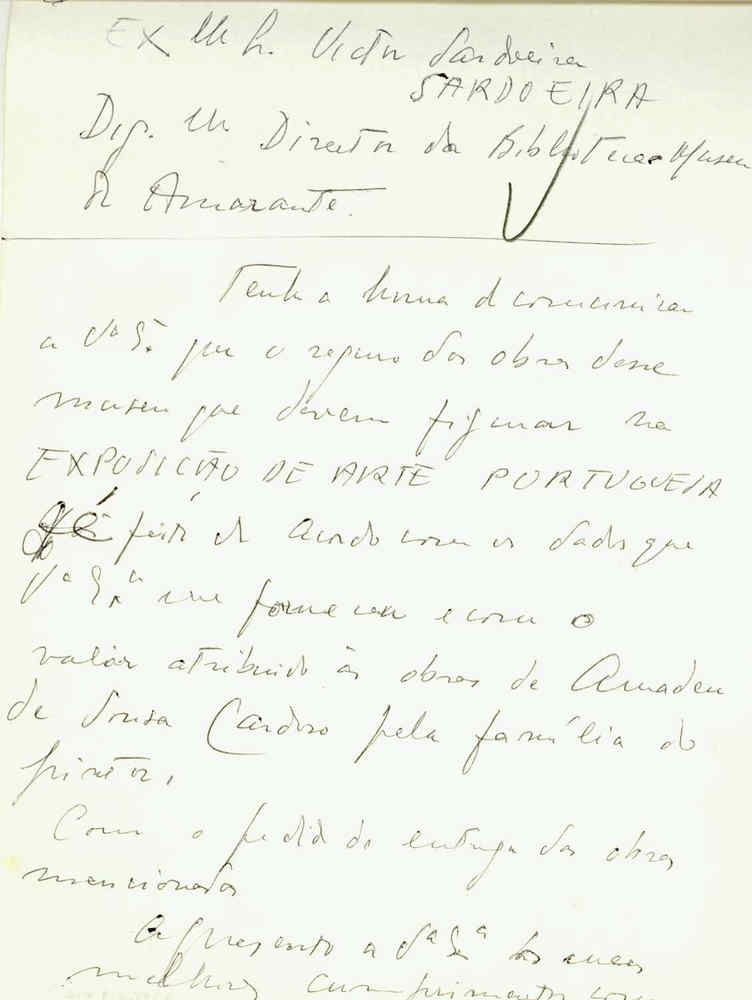 EX Mº Sr. Victor Sardoeira
SARDOEIRA
Dig. Mº Director da Biblioteca Museu
de Amarante.
Tenho a honra de comunicar
a Vª Eª que o seguro das obras desse
museu que devem figurar na
EXPOSIÇÃO DE ARTE PORTUGUESA
é feito de acordo com os dados que
Vª Exª me forneceu e com o
valor atribuido às obras de Amadeu
de Sousa Cardoso pela família do
pintor,
Com o pedido de entrega das obras
mencionadas
Apresento a Vª Exª os meus
melhores cumprimentos com